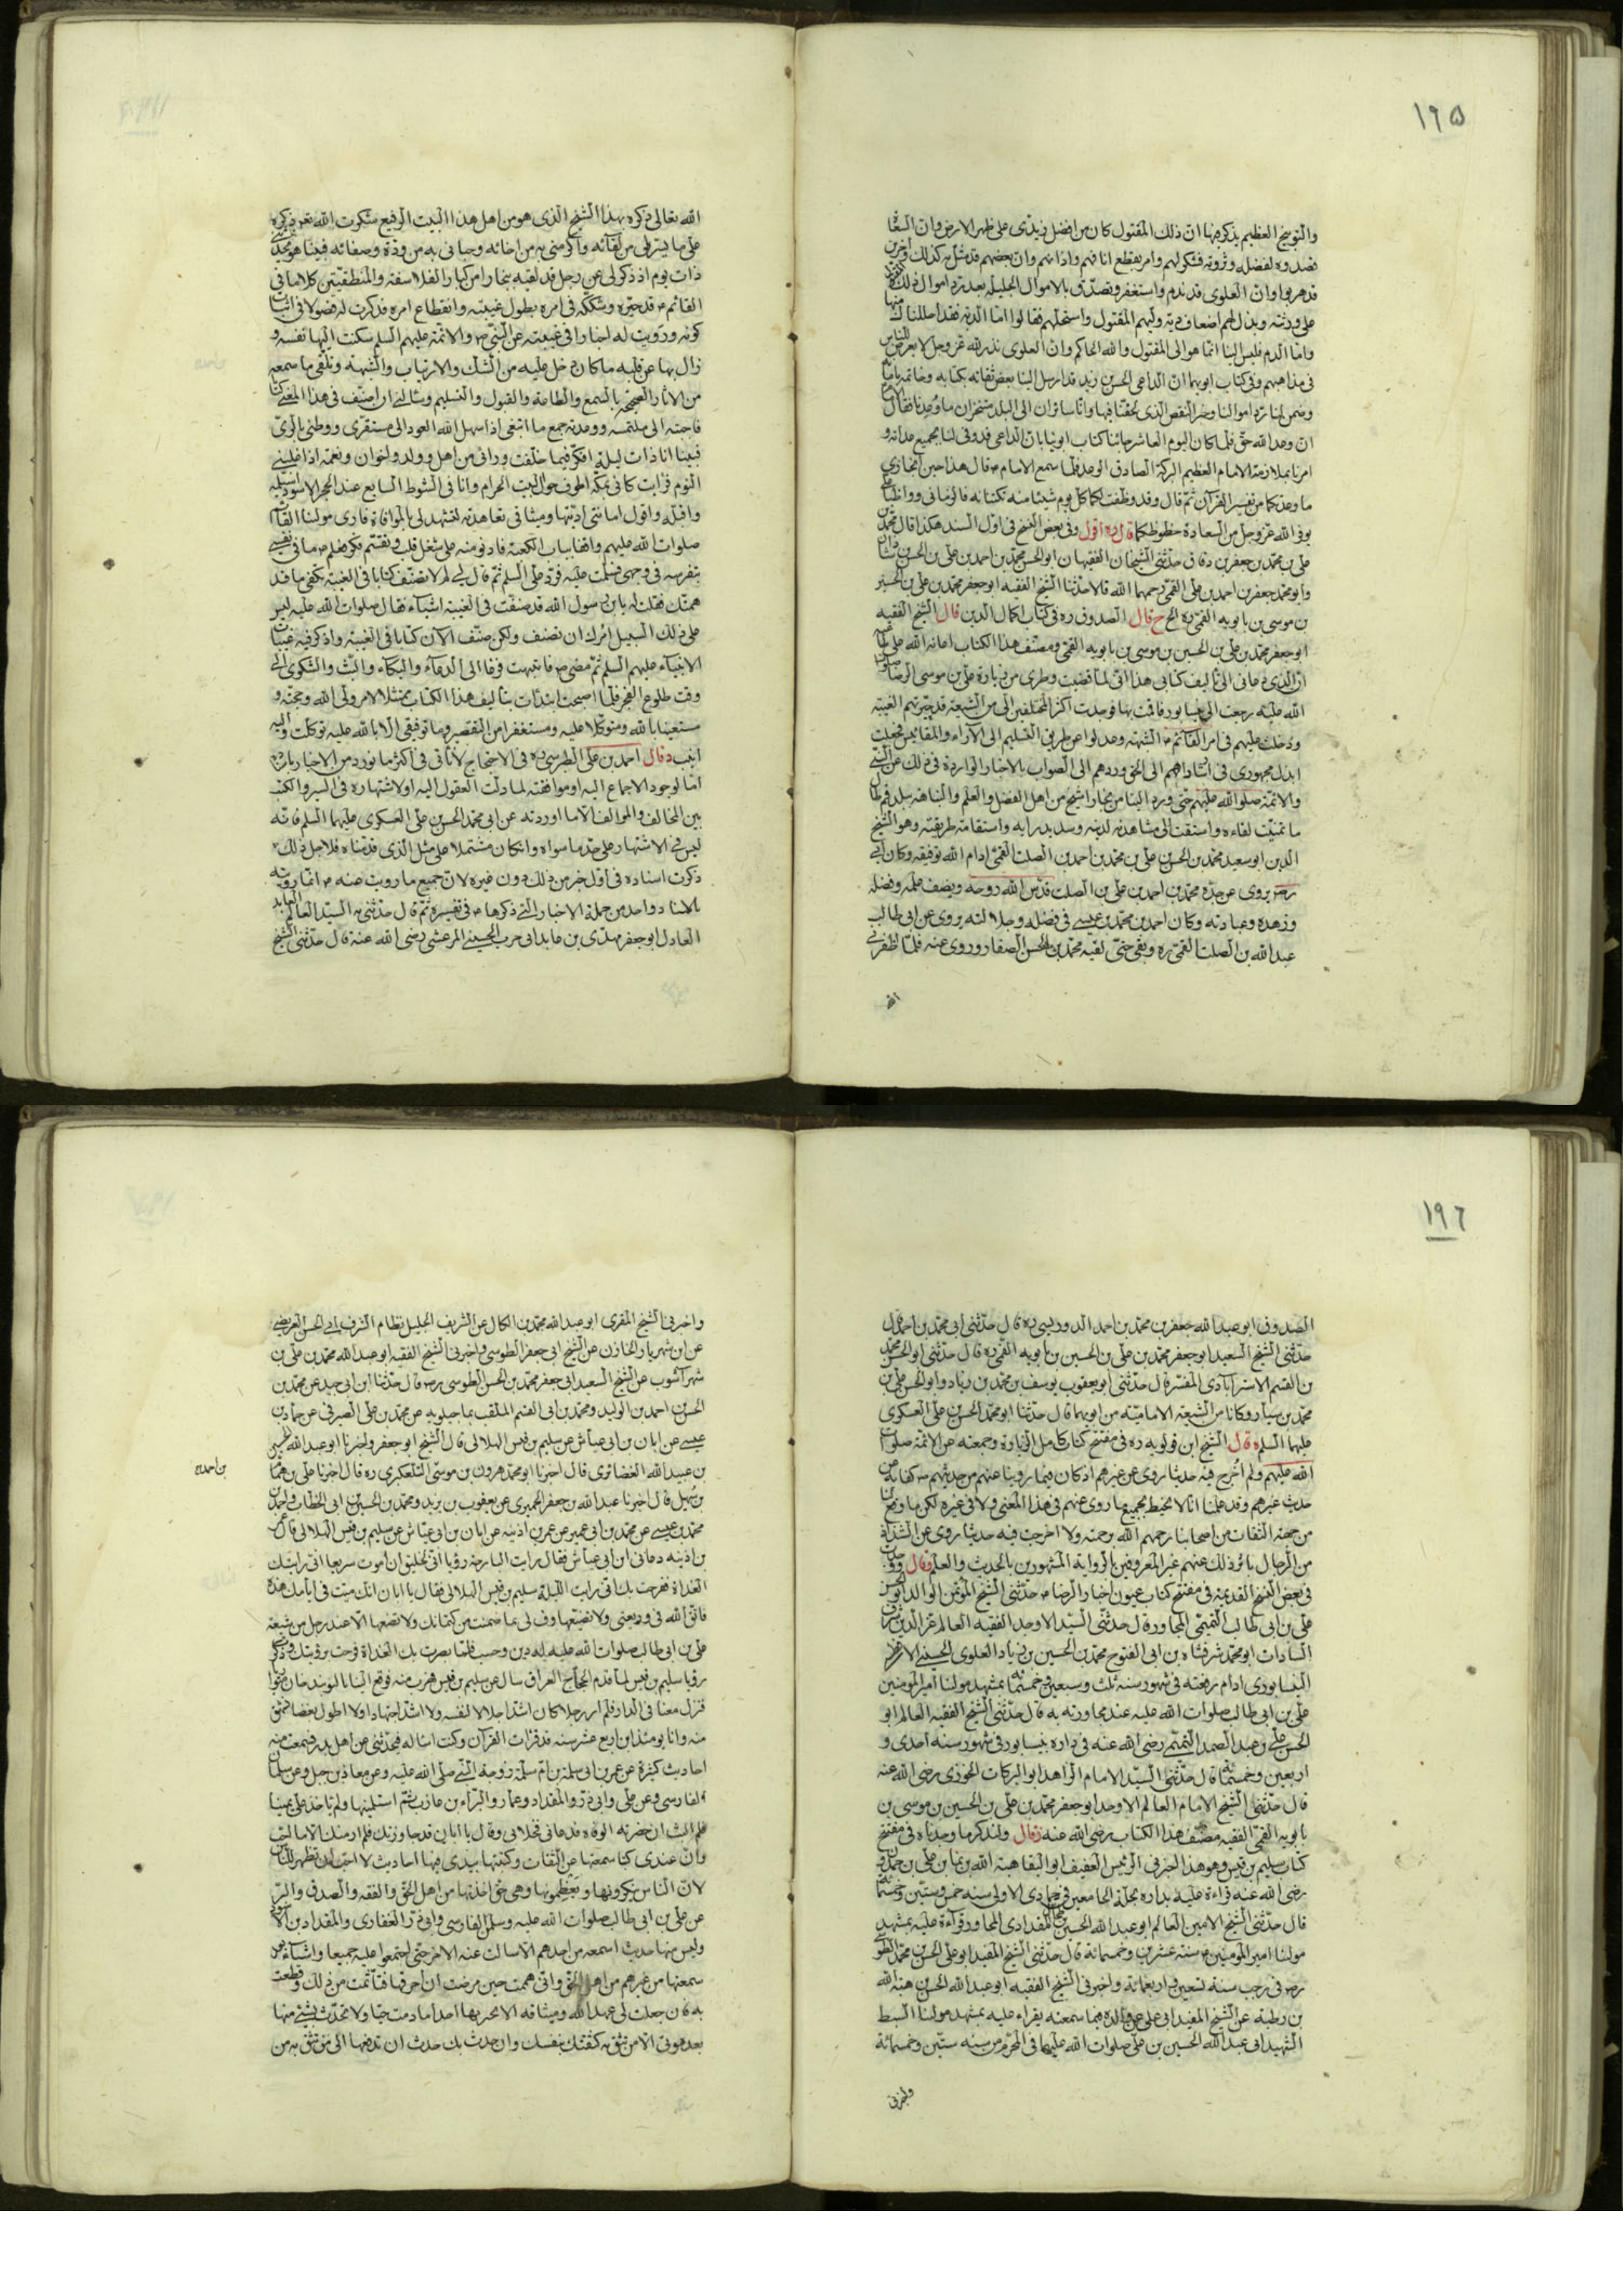 ١٩٥
والتوبيخ العظيم يذكر فيها ان ذلك المقتول كان من افضل زيدى على ظهر الارض وان السعاة
قصدوه لفضله وثروته فشكر لهم وامر بقطع انافهم واذانهم وان بعضهم قد مثل به كذلك واخرين
قد هربوا وان العلوى قد ندم واستغفر وتصدق بالاموال الجليلة بعد رد اموال ذلك المقتول
على ورثته وبذل لهم اضعاف دية وليهم المقتول واستحلهم فقالوا اما الدية فقد احللناك منها
واما الدم فليس الينا انما هو الى المقتول والله الحاكم وان العلوى نذر لله عز وجل الا يعرض للناس
فى مذاهبهم وفى كتاب ابويهما ان الداعى الحسن بن زيد قد ارسل الينا بعض ثقاته بكتابه وخاتمه بامانه
وضمن لنا رد اموالنا وجبر النقص الذى لحقنا فيها وانا سائران الى البلد متنجزان ما وعدنا فقال الامام
ان وعد الله حق فلما كان اليوم العاشر جائنا كتاب ابوينا بان الداعى قد وفى لنا بجميع عداته و
امرنا بملازمة الامام العظيم البركة الصادق الوعد فلما سمع الامام م قال هذا حين انجازى
ما وعدتكما من تفسير القرآن ثم قال وقد وظفت لكما كل يوم شيئا منه تكتبانه فالزمانى وواظبا على
يوفر الله عز وجل من السعادة حظوظكما قال ره اقول وفى بعض النسخ فى اول السند هكذا قال محمد بن
على بن محمد بن جعفر بن دقاق حدثنى الشيخان الفقيهان ابو الحسن محمد بن احمد بن على بن الحسن بن شاذان
وابو محمد جعفر بن احمد بن على القمى رحمهما الله قالا حدثنا الشيخ الفقيه ابو جعفر محمد بن على بن الحسين
بن موسى بن بابويه القمى ره الخ ح قال الصدوق ره فى كتاب اكمال الدين قال الشيخ الفقيه
ابو جعفر محمد بن على بن الحسين بن موسى بن بابويه القمى ومصنف هذا الكتاب اعانه الله على طاعته
ان الذى دعانى الى تأليف كتابى هذا انى لما قضيت وطرى من زيارة على بن موسى الرضا صلوات
الله عليه رجعت الى نيسابور فاقمت بها فوجدت اكثر المختلفين الى من الشيعة قد حيرتهم الغيبة
ودخلت عليهم فى امر القائم م الشبهة وعدلوا عن طريق التسليم الى الآراء والمقائيس فجعلت
ابذل مجهودى فى ارشادهم الى الحق وردهم الى الصواب بالاخبار الواردة فى ذلك عن النبى
والائمة صلوات الله عليهم حتى ورد الينا من بخارا شيخ من اهل الفضل والعلم والنباهة ببلد قم طال
ما تمنيت لقاءه واشتقت الى مشاهدته لدينه وسديد رايه واستقامة طريقته وهو الشيخ
الدين ابو سعيد محمد بن الحسن بن على بن محمد بن احمد بن الصلت القمى ادام الله توفيقه وكان ابى
رضه يروى عن جده محمد بن احمد بن على بن الصلت قدس الله روحه ويصف علمه وفضله
وزهده وعبادته وكان احمد بن محمد بن عيسى فى فضله وجلالته يروى عن ابى طالب
عبد الله بن الصلت القمى ره وبقى حتى لقيه محمد بن الحسن الصفار وروى عنه فلما اظفرنى
الله
الله تعالى ذكره بهذا الشيخ الذى هو من اهل هذا البيت الرفيع شكرت الله تعالى ذكره
على ما يسر لى من لقائه واكرمنى به من اخائه وحبانى به من وده وصفائه فبينا هو يحدثنى
ذات يوم اذ ذكر لى عن رجل قد لقيه ببخارا من كبار الفلاسفة والمنطقيين كلاما فى
القائم م قد حيره وشككه فى امره بطول غيبته وانقطاع امره فذكرت له فصولا فى اثبات
كونه ورويت له اخبارا فى غيبته عن النبى ص والائمة عليهم السلم سكنت اليها نفسه و
زال بها عن قلبه ما كان دخل عليه من الشك والارتياب والشبهة وتلقى ما سمعه
من الاثار الصحيحة بالسمع والطاعة والقبول والتسليم وسئالنى ان اصنف فى هذا المعنى كتابا
فاجبته الى ملتمسه ووعدته جمع ما ابتغى اذا سهل الله العود الى مستقرى ووطنى بالرى
فبينا انا ذات ليلة افكر فيما خلفت ورائى من اهل وولد واخوان ونعمة اذا غلبنى
النوم فرايت كانى بمكة اطوف حول البيت الحرام وانا فى الشوط السابع عند الحجر الاسود استلمه
واقبله واقول امانتى اديتها وميثاقى تعاهدته لتشهد لى بالموافاة فارى مولينا القائم
صلوات الله عليهم واقفا بباب الكعبة فادنو منه على شغل قلب وتقسم فكر فعلم م ما فى نفسى
بتفرسه فى وجهى فسلمت عليه فرد على السلم ثم قال لى لم لا تصنف كتابا فى الغيبة تكفى ما قد
همك فقلت له يابن رسول الله قد صنفت فى الغيبة اشياء فقال صلوات الله عليه ليس
على ذلك السبيل امرك ان تصنف ولكن صنف الآن كتابا فى الغيبة واذكر فيه غيبات
الانبياء عليهم السلم ثم مضى م فانتبهت فزعا الى الدعاء والبكاء والبث والشكوى الى
وقت طلوع الفجر فلما اصبحت ابتدأت بتأليف هذا الكتاب ممتثلا لامر ولى الله وحجته و
مستعينا بالله ومتوكلا عليه ومستغفرا من التقصير وما توفيقى الا بالله عليه توكلت واليه
انيب د قال احمد بن على الطبرسى ره فى الاحتجاج لا نأتى فى اكثر ما نورد من الاخبار باسناده
اما لوجود الاجماع اليه او موافقته لما دلت العقول اليه او لاشتهاره فى السير والكتب
بين المخالف والموالف الا ما اوردته عن ابى محمد الحسن بن على العسكرى عليهما السلم فانه
ليس فى الاشتهار على حد ما سواه وان كان مشتملا على مثل الذى قدمناه فلاجل ذلك
ذكرت اسناده فى اول خبر من ذلك دون غيره لان جميع ما رويت عنه م انما رويته
بالاسناد واحد من جملة الاخبار التى ذكرها م فى تفسيره ثم قال حدثنى به السيد العالم العابد
العادل ابو جعفر مهدى بن عابد ابى حرب الحسينى المرعشى رضى الله عنه قال حدثنى الشيخ
١٩٦
الصدوق ابو عبد الله جعفر بن محمد بن احمد الدوريستى ره قال حدثنى ابى محمد بن احمد قال
حدثنى الشيخ السعيد ابو جعفر محمد بن على بن الحسين بن بابويه القمى ره قال حدثنى ابو الحسن محمد
بن القسم الاسترآبادى المفسر قال حدثنى ابو يعقوب يوسف بن محمد بن زياد وابو الحسن على بن
محمد بن سيار وكانا من الشيعة الامامية من ابويهما قال حدثنا ابو محمد الحسن بن على العسكرى
عليهما السلم ه قال الشيخ ابن قولويه ره فى مفتتح كتاب كامل الزيارة وجمعته عن الائمة صلوات
الله عليهم ولم اخرج فيه حديثا روى عن غيرهم اذ كان فيما روينا عنهم من حديثهم ص كفاية عن
حديث غيرهم وقد علمنا انا لا نحيط بجميع ما روى عنهم فى هذا المعنى ولا فى غيره لكن ما وقع لنا
من جهة الثقات من اصحابنا رحمهم الله برحمته ولا اخرجت فيه حديثا روى عن الشذاذ
من الرجال يأثر ذلك عنهم غير المعروفين بالرواية المشهورين بالحديث والعلم و قال ووجدت
فى بعض النسخ القديمة فى مفتتح كتاب عيون اخبار الرضا م حدثنى الشيخ المؤتمن الوالد ابو الحسين
على بن ابى طالب التميمى المجاور قال حدثنى السيد الاوحد الفقيه العالم عز الدين شرف
السادات ابو محمد شرفشاه بن ابى الفتوح محمد بن الحسين بن زياد العلوى الحسينى الافطسى
النيسابورى ادام رفعته فى شهور سنة ثلث وسبعين وخمسمائة بمشهد مولنا امير المومنين
على بن ابى طالب صلوات الله عليه عند مجاورته به قال حدثنى الشيخ الفقيه العالم ابو
الحسن على بن عبد الصمد التميمى رضى الله عنه فى داره بنيسابور فى شهور سنة احدى و
اربعين وخمسمائة قال حدثنى السيد الامام الزاهد ابو البركات الخوزى رضى الله عنه
قال حدثنى الشيخ الامام العالم الاوحد ابو جعفر محمد بن على بن الحسين بن موسى بن
بابويه القمى الفقيه مصنف هذا الكتاب رضى الله عنه ز قال ولنذكر ما وجدناه فى مفتتح
كتاب سليم بن قيس وهو هذا اخبرنى الرئيس العفيف ابو البقا هبة الله بن نما بن على بن حمدون
رضى الله عنه قراءة عليه بداره بحلة الجامعين فى جمادى الاولى سنة خمس وستين وخمسمائة
قال حدثنى الشيخ الامين العالم ابو عبد الله الحسين بن طحال المقدادى المجاور قراءة عليه بمشهد
مولنا امير المومنين م سنة عشرين وخمسمائة قال حدثنى الشيخ المفيد ابو على الحسن بن محمد الطوسى
رضه فى رجب سنة تسعين واربعمائة واخبرنى الشيخ الفقيه ابو عبد الله الحسن بن هبة الله
بن رطبة عن الشيخ المفيد ابى على عن والده فيما سمعته يقراء عليه بمشهد مولنا السبط
الشهيد ابى عبد الله الحسين بن على صلوات الله عليهما فى المحرم من سنة ستين وخمسمائة
واخبرنى
واخبرنى الشيخ المقرى ابو عبد الله محمد بن الكال عن الشريف الجليل نظام الشرف ابى الحسن العريضى
عن ابن شهريار الخازن عن الشيخ ابى جعفر الطوسى واخبرنى الشيخ الفقيه ابو عبد الله محمد بن على بن
شهرآشوب عن الشيخ السعيد ابى جعفر محمد بن الحسن الطوسى رضه قال حدثنا ابن ابى جيد عن محمد بن
الحسن بن احمد بن الوليد ومحمد بن ابى القسم الملقب بماجيلويه عن محمد بن على الصيرفى عن حماد بن
عيسى عن ابان بن ابى عياش عن سليم بن قيس الهلالى قال الشيخ ابو جعفر واخبرنا ابو عبد الله الحسين
بن عبيد الله الغضائرى قال اخبرنا ابو محمد هرون بن موسى التلعكبرى ره قال اخبرنا على بن همام
بن سهيل قال اخبرنا عبد الله بن جعفر الحميرى عن يعقوب بن يزيد ومحمد بن الحسين بن ابى الخطاب واحمد بن
محمد بن عيسى عن محمد بن ابى عمير عن عمر بن اذينة عن ابان بن ابى عياش عن سليم بن قيس الهلالى قال عمر
بن اذينه دعانى ابن ابى عياش فقال رايت البارحة رؤيا انى لخليق ان اموت سريعا انى رايتك
الغداة ففرحت بك انى رايت الليلة سليم بن قيس الهلالى فقال يا ابان انك ميت فى ايامك هذه
فاتق الله فى وديعتى ولا تضيعها وف لى بما ضمنت من كتمانك ولا تضعها الا عند رجل من شيعة
على بن ابى طالب صلوات الله عليه له دين وحسب فلما بصرت بك الغداة فرحت برؤيتك وذكرت
رؤيا سليم بن قيس لما قدم الحجاج العراق سال عن سليم بن قيس فهرب منه فوقع الينا بالنوبندجان متواريا
فنزل معنا فى الدار فلم ار رجلا كان اشد اجلالا لنفسه ولا اشد اجتهادا ولا اطول بغضا للشهرة
منه وانا يومئذ ابن اربع عشر سنة قد قرات القرآن وكنت اساله فيحدثنى عن اهل بدر فسمعت منه
احاديث كثيرة عن عمر بن ابى سلمة بن ام سلمة زوجة النبى صلى الله عليه وعن معاذ بن جبل وعن سلمان
الفارسى وعن على وابى ذر والمقداد وعمار والبراء بن عازب ثم استلبثها ولم ياخذ على يمينا
فلم البث ان حضرته الوفاة فدعانى فخلا بى وقال يا ابان قد جاورتك فلم ار منك الا ما احب
وان عندى كتبا سمعتها عن الثقات وكتبتها بيدى فيها احاديث لا احب ان تظهر للناس
لان الناس ينكرونها ويعظمونها وهى حق اخذتها من اهل الحق والفقه والصدق والبر
عن على بن ابى طالب صلوات الله عليه وسلمان الفارسى وابى ذر الغفارى والمقداد بن الاسود
وليس منها حديث اسمعه من احدهم الا سالت عنه الاخر حتى اجتمعوا عليه جميعا واشياء بعد
سمعتها من غيرهم من اهل الحق وانى هممت حين مرضت ان احرقها فتأثمت من ذلك وقطعت
به فان جعلت لى عهد الله وميثاقه الا تخبر بها احدا ما دمت حيا ولا تحدث بشىء منها
بعد موتى الا من تثق به كثقتك بنفسك وان حدث بك حدث ان تدفعها الى من تثق به من
بن احمد